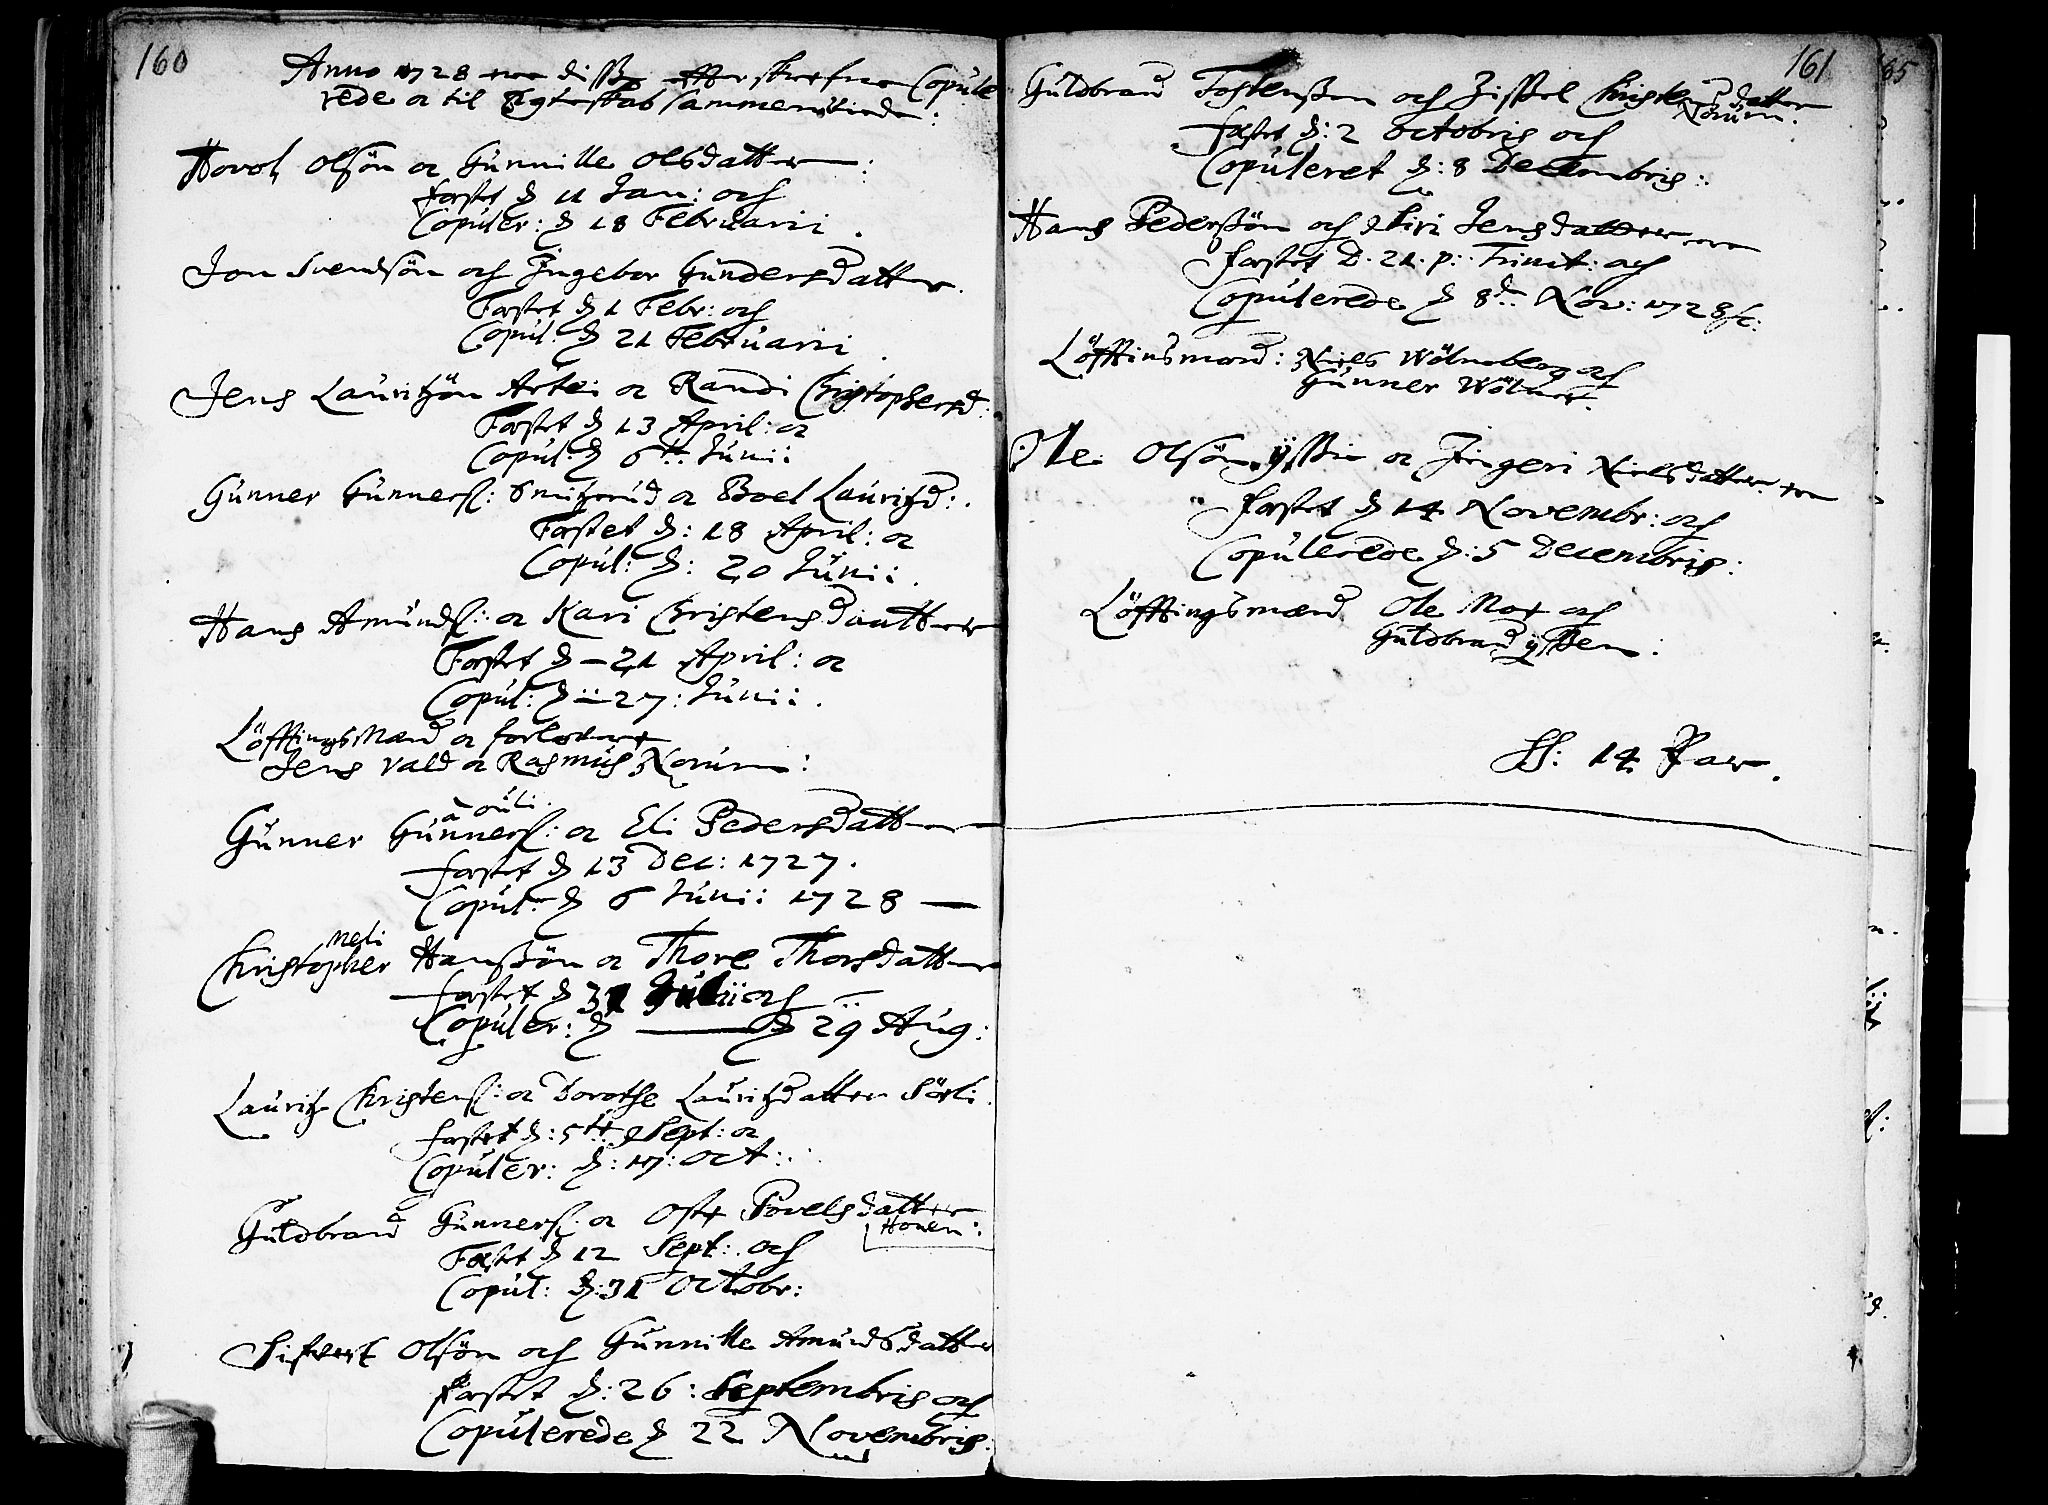 160
Anno 1728 ere disse effterskrefne Copule
rede oc til Egteskab sammenviede:
Hovol Olsön oc Gunnille Olsdatter:
fæstet d 11 Jan: och
Copuler: d 18 Februarii.
Jon Svendsön och Ingebor Gundersdatter.
Fæstet d 1 Febr: och
Copul: d 21 Februarii.
Jens Lauritzön oc Randi Christophersd:
Fæstet d 13 April: oc
Copul: d 6te Junii
Gunner Gunners: Smitzrud oc Boel Lauritzd:.
Fæstet d: 18 April: oc
Copul: d: 20 Junii.
Hans Amunds: oc Kari Christensdaatter
Fæstet d 21 April: oc
Copul: d 27: Junii.
Löfftings Mænd oc forlovere
Jens Vald oc Rasmus Norum:
à ouli.
Gunner Gunners: oc Eli Pedersdatter
fæstet d 13 Dec: 1727.
Copul: d 6 Junii 1728
Meli
Christopher Hanssön oc Thore Thorsdatter
fæstet d 31 Julii och
Copuler: d d 29 Aug:
Lauritz Christens: oc Dorothe Lauritzdatter Sörli.
fæstet d: 5te Sept: oc
Copuler: d: 17: Oct:
Guldbrand Gunners: oc Oste Povelsdatter
Hoven:
Fæstet d 12 Sept: och
Copul: d: 31 Octobr:
Sifvert Olsön och Gunnille Amundsdatter
fæstet d: 26: Septembris och
Copulerede d 22 Novembris:
161
Guldbrand Tostensen och Zissel Christensdatter
Norum.
fæstet d: 2 octobris och
Copuleret d: 8 Decembris:
Hans Pederssön och Siri Jensdatter
fæstet D. 21. p: Trinit: och
Copulerede d 8de Nov: 1728 &c:
Löfftinsmænd: Niels Wölneberg och
Gunner Wölner.
Ole Olsön ÿssen oc Jngeri Nielsdatter
fæstet d 14 Novembr: och
Copulerede d: 5 Decembris:
Löfftingsmænd Ole Moe och
Guldbrand ÿssen:
SS: 14 Par.
85